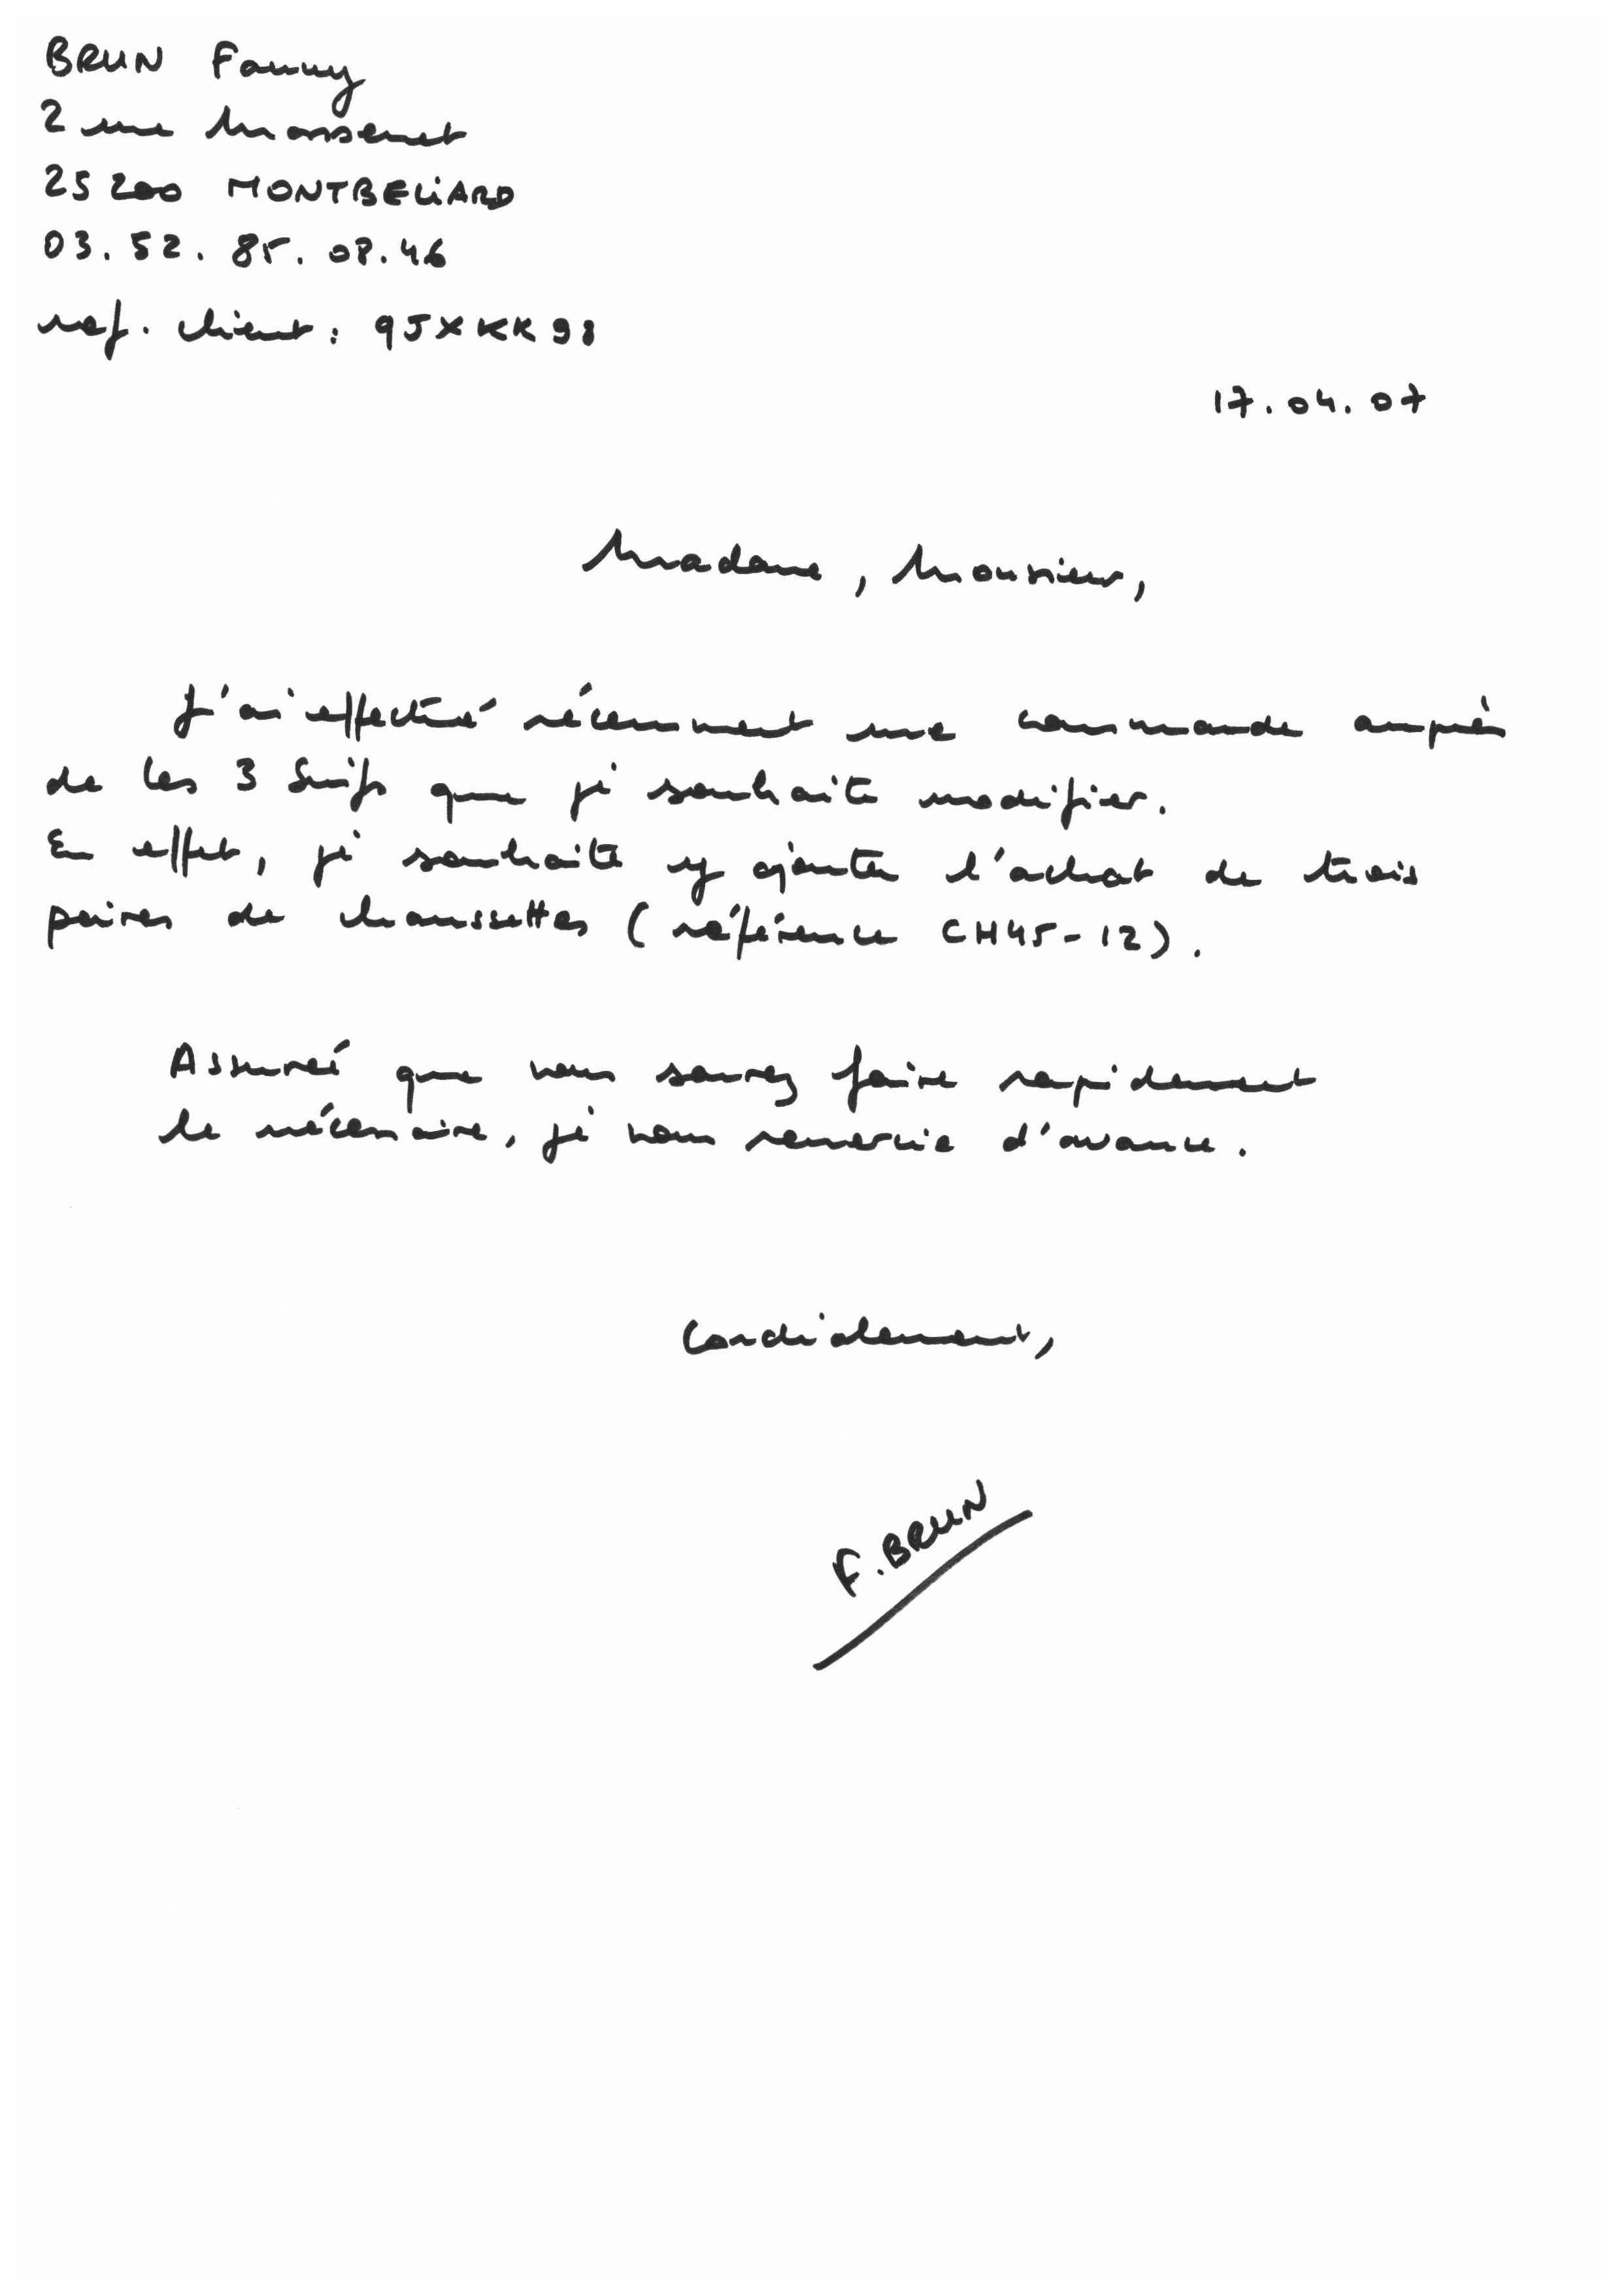 BRUN Fanny
2 rue Massenet
25200 MONTBELiARD
03.52.85.08.46
ref. client : 9JXKK98
17.04.07
Madame, Monsieur,
J'ai effectué récemment une commande auprès
de Les 3 Suifs que je souhaite modifier.
En effet, je souhaite y ajouter l'achat de trois
paires de chaussettes (référence CH45-12).
Assuré que vous saurez faire rapidement
le nécessaire, je vous remercie d'avance.
Cordialement,
F. BRUN